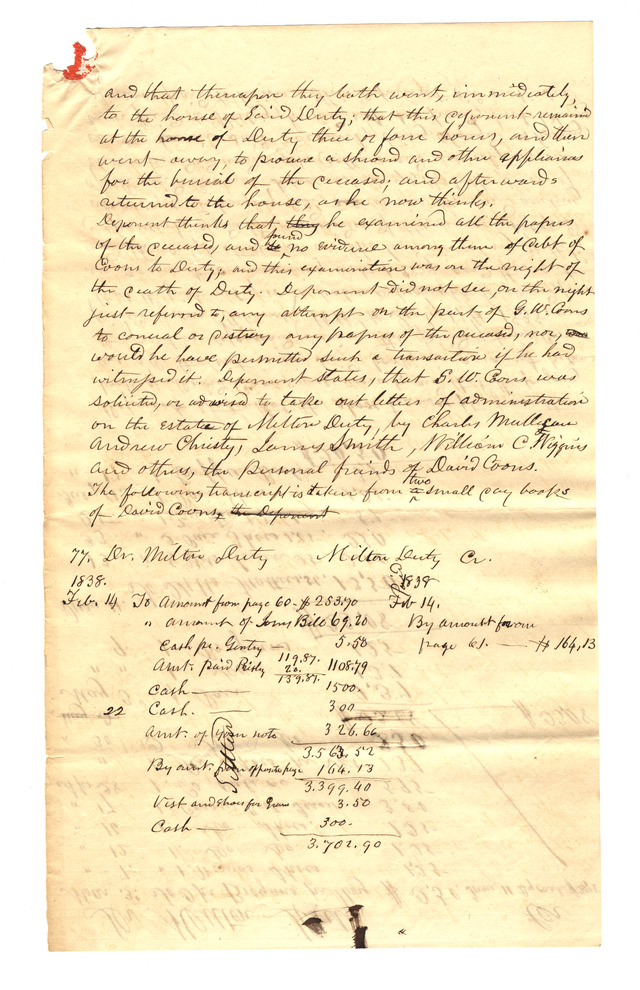 and that thereupon they both went, immediately,
to the house of said Duty; that this deponent remained
at the house of Duty three or four hours, and then
went away, to procure a shroud and other appliances
for the burial of the deceased; and afterwards
returned to the house, as he now thinks.
Deponent thinks that they he examined all the papers
of the deceased, and found no evidence among them of debt of
Coons to Duty; and this examination was on the night of
the death of Duty. Deponent did not see, on the night
just referred to, any attempt on the part of G. W. Coons
to conceal or destroy any papers of the deceased, nor,
would he have permitted such a transaction if he had
witnessed it. Deponent states, that G. W. Coons was
solicited, or advised to take out letters of administration
on the estate of Milton Duty, by Charles Mullikin
Andrew Christy, James Smith, William C. Wiggins
and others, the personal friends of David Coons.
The following transcript is taken from two small day books
of David Coons, the Deponent
77. Dr. Milton Duty Milton Duty Cr.
1838. 1838
Feb. 14 To Amount from page 60 - $ 283.70 Feb 14.
" amount of Jones Bill 69.20 By amount from
Cash pr. Gentry — 5.50 page 61. — $ 164,13
119.87.
Amt. paid Risly 20. 1108.79
139.87.
Cash — 1500.
22 Cash. — 300
Amt. of your note 326.66
3.563.52
By amt. from opposite page 164.13
Settled
3.399.40
Vest and shoes for 3.50
Cash — 300.
3.702.90